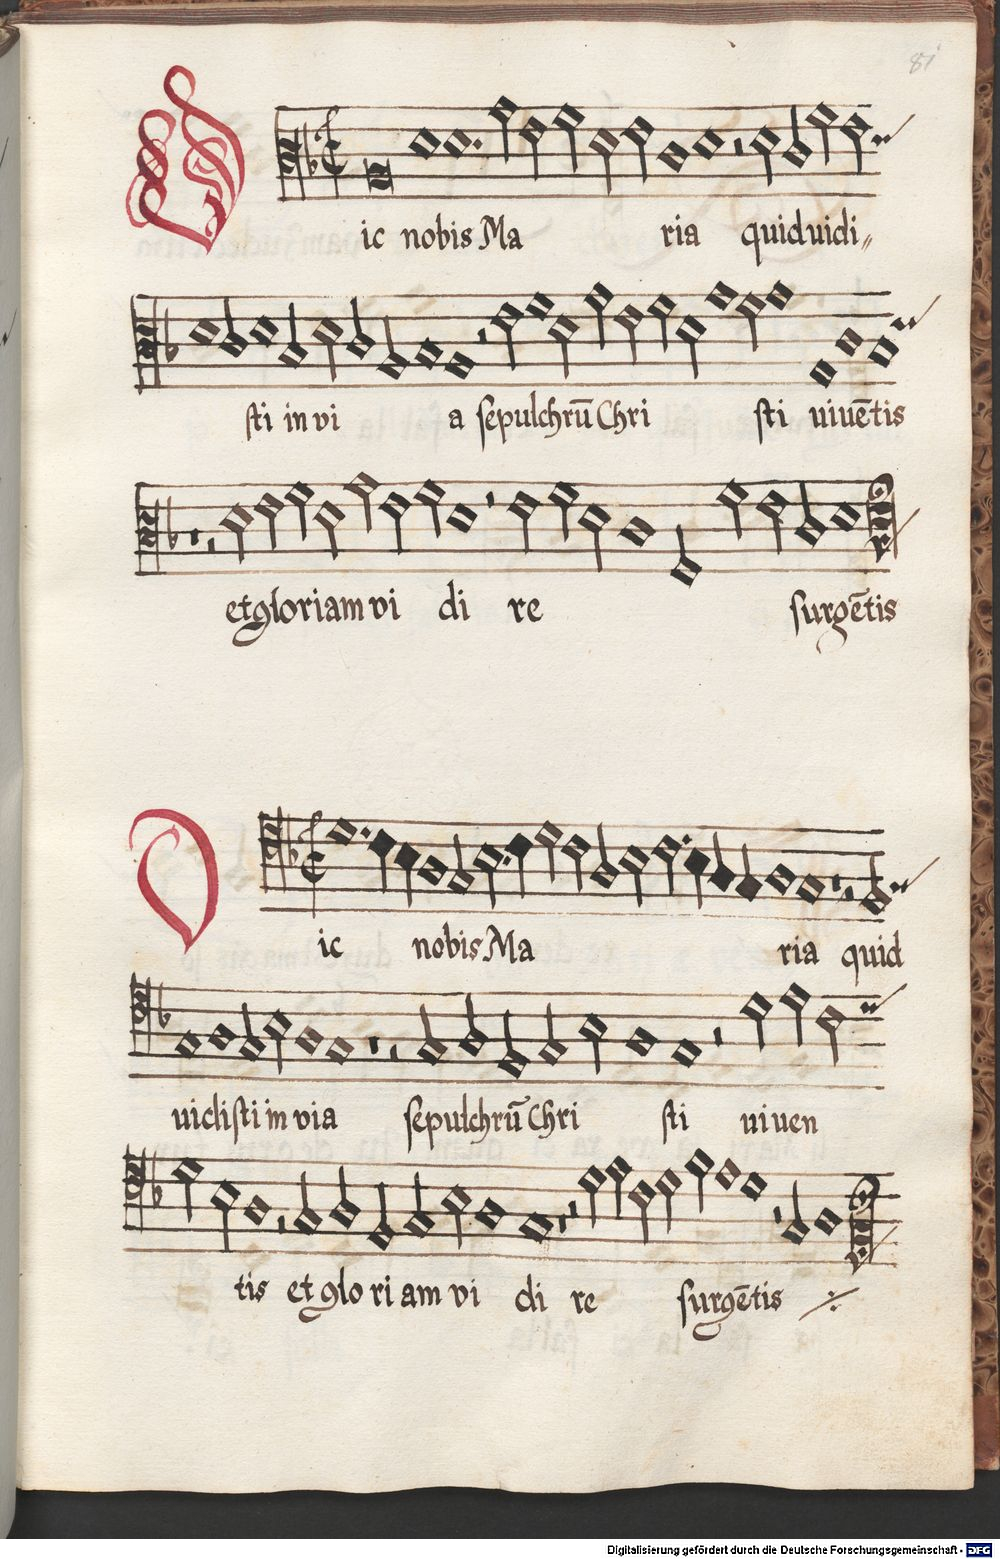 81
Dic nobis Ma ria quid uidi〃
sti in vi a sepulchrū Chri sti uiuētis
et gloriam vi di re surgētis
Dic nobis Ma ria quid
uidisti in via sepulchrū Chri sti uiuen
tis et glo ri am vi di re surgētis
Digitalisierung gefördert durch die Deutsche Forschungsgemeinschaft - DFG